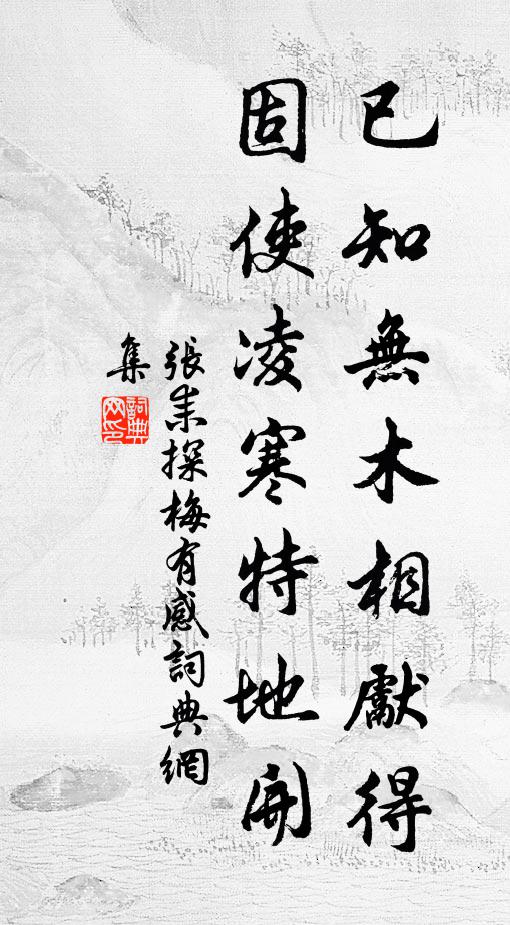 已知無木相獻得
固使凌寒特地開
張耒探梅有感詞典網
集
詞典
网印